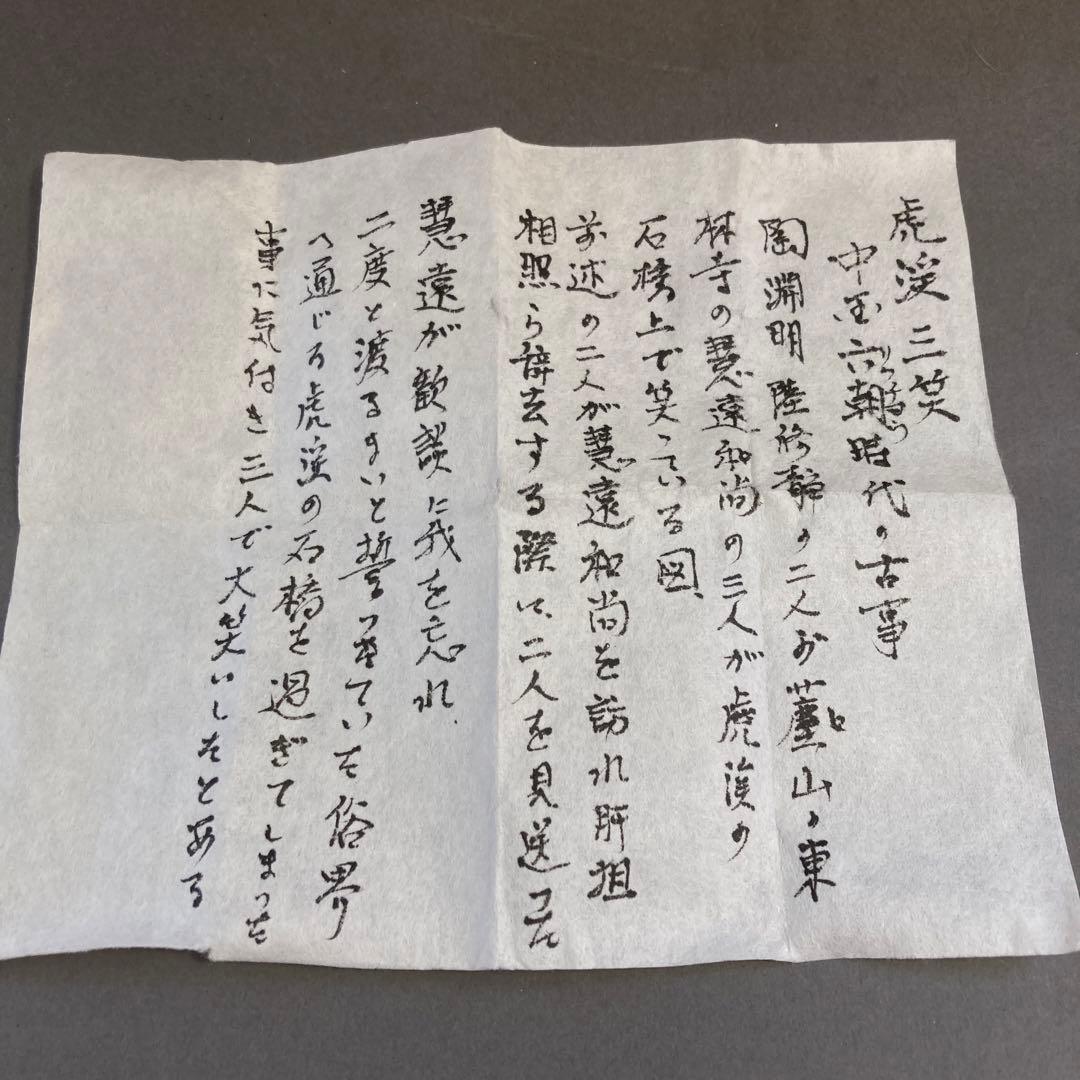 虎渓三笑
中国六朝時代の古事
陶淵明 陸修静の二人が廬山の東
林寺の慧遠和尚の三人が虎渓の
石橋上で笑っている図、
前述の二人が慧遠和尚を訪れ肝胆
相照ら辞去する際に、二人を見送った
慧遠が歓談に我を忘れ、
二度と渡るまいと誓っていた俗界
へ通じる虎渓の石橋を過ぎてしまった
事に気付き三人で大笑いしたとある